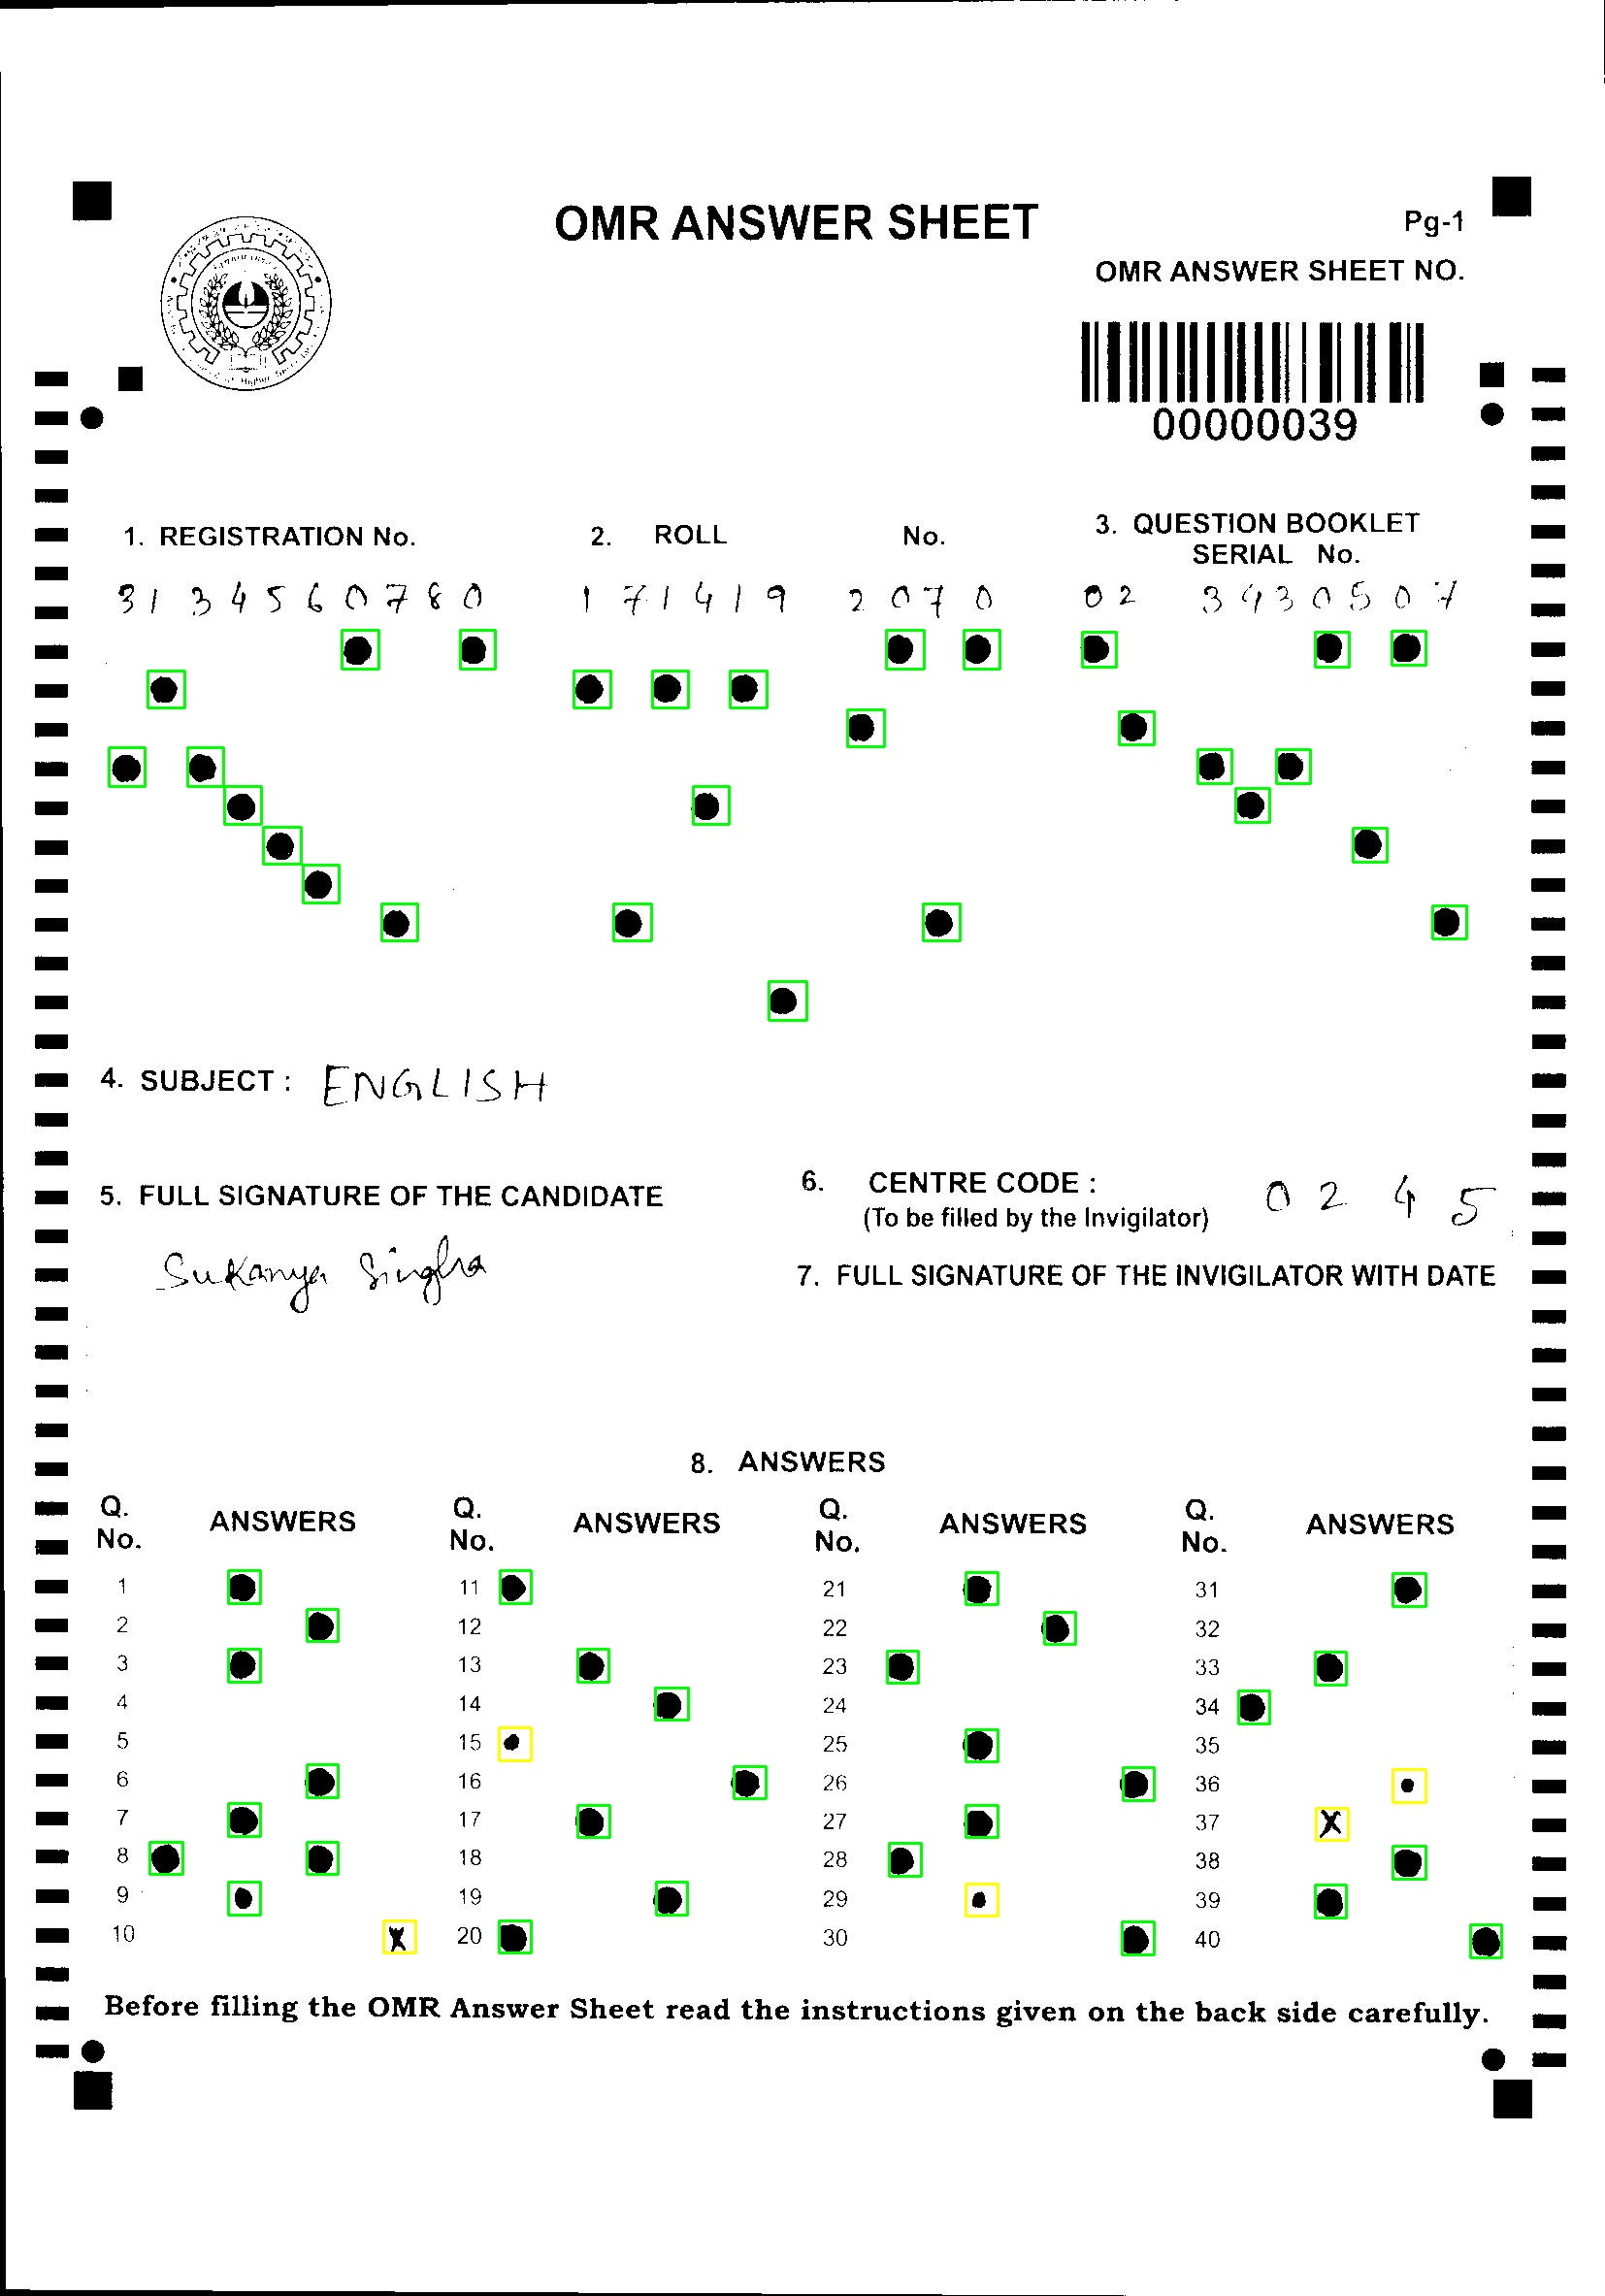 OMR ANSWER SHEET
Pg-1
OMR ANSWER SHEET NO.
00000039
1. REGISTRATION No.
2. ROLL No.
3. QUESTION BOOKLET
SERIAL No.
31 34560780
171419 2070
02 3430507
4. SUBJECT : ENGLISH
5. FULL SIGNATURE OF THE CANDIDATE
Sukanya Singha
6. CENTRE CODE : 0 2 4 5
(To be filled by the Invigilator)
7. FULL SIGNATURE OF THE INVIGILATOR WITH DATE
8. ANSWERS
Q. No. ANSWERS Q. No. ANSWERS Q. No. ANSWERS Q. No. ANSWERS
1 11 21 31
2 12 22 32
3 13 23 33
4 14 24 34
5 15 25 35
6 16 26 36
7 17 27 37
8 18 28 38
9 19 29 39
10 20 30 40
Before filling the OMR Answer Sheet read the instructions given on the back side carefully.